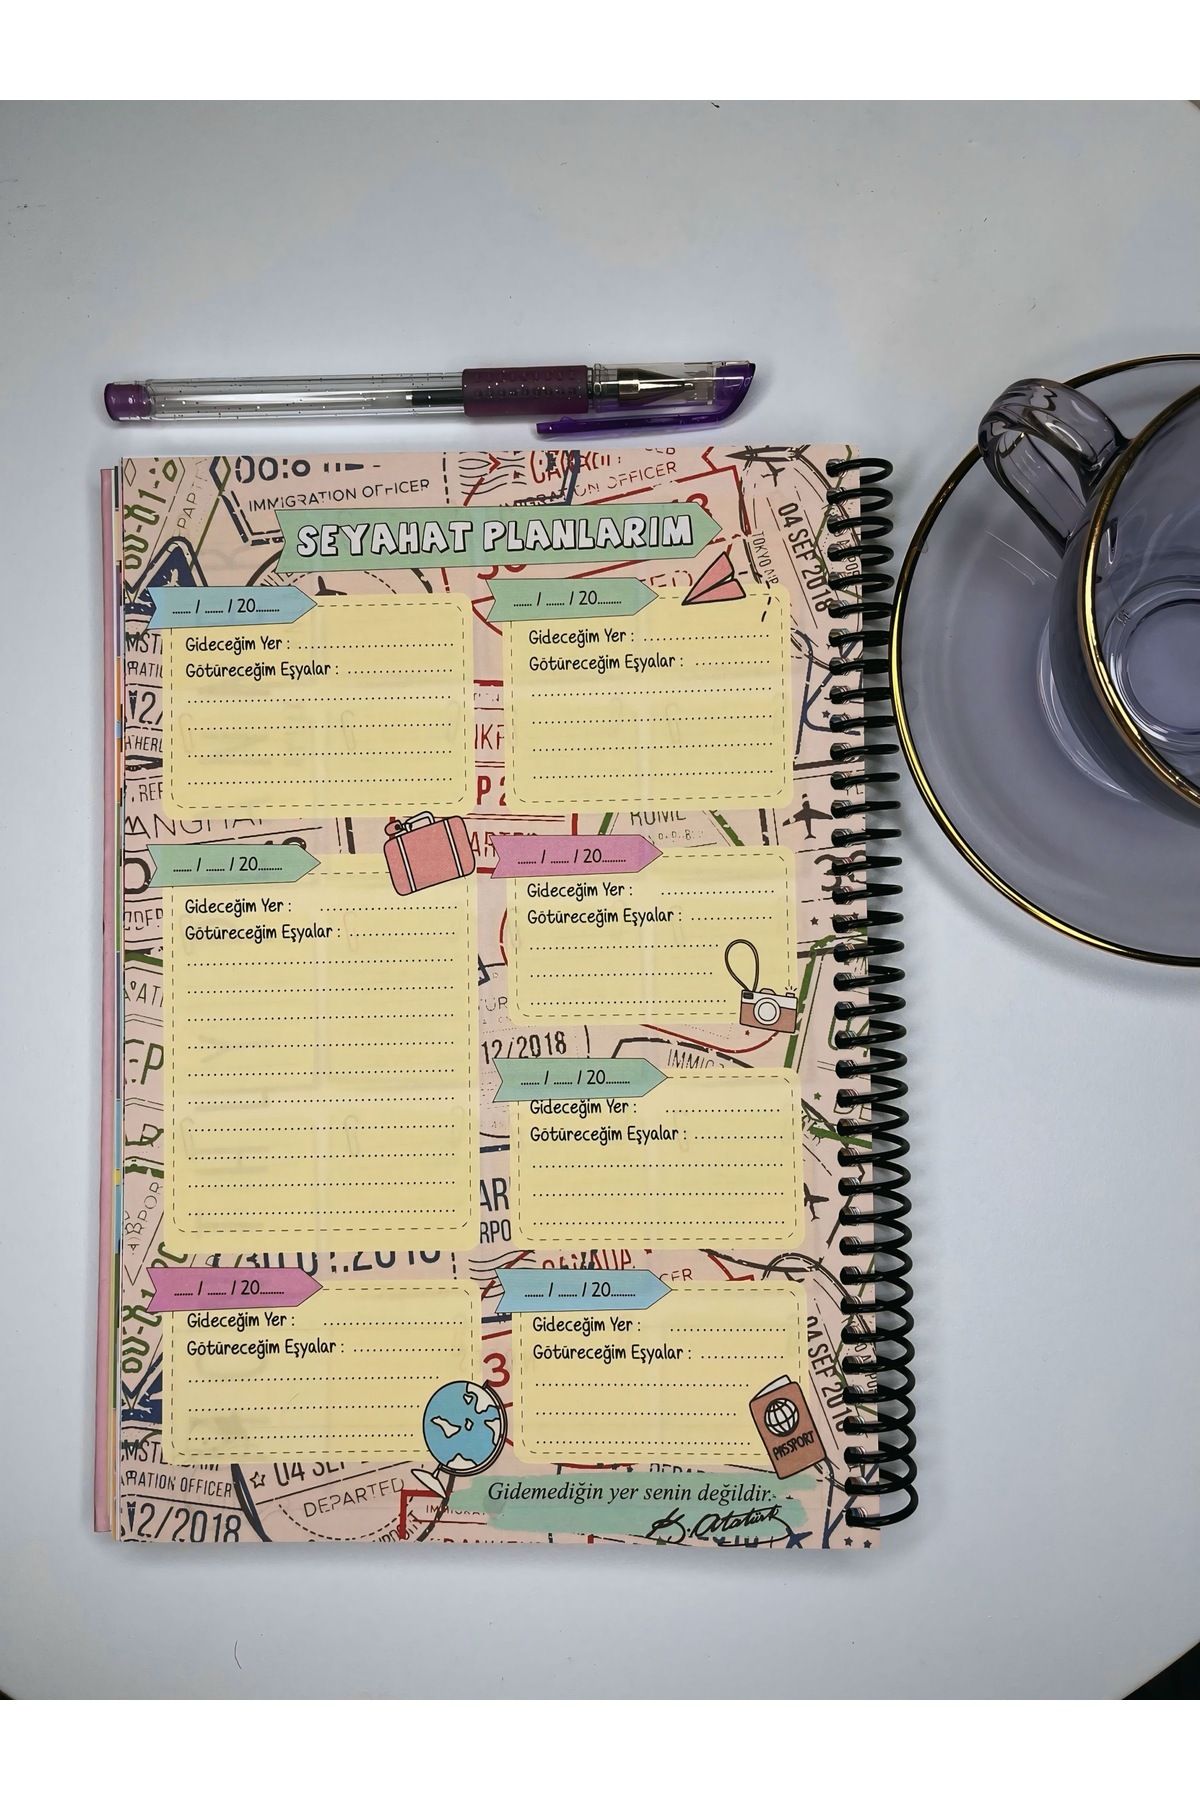 IMMIGRATION OFFICER
IMMIGRATION OFFICER
04 SEP 2018
SEYAHAT PLANLARIM
....... / ....... / 20.........
Gideceğim Yer :
Götüreceğim Eşyalar :
....... / ....... / 20.........
Gideceğim Yer :
Götüreceğim Eşyalar :
....... / ....... / 20.........
Gideceğim Yer :
Götüreceğim Eşyalar :
....... / ....... / 20.........
Gideceğim Yer :
Götüreceğim Eşyalar :
12/2018
....... / ....... / 20.........
Gideceğim Yer :
Götüreceğim Eşyalar :
....... / ....... / 20.........
Gideceğim Yer :
Götüreceğim Eşyalar :
....... / ....... / 20.........
Gideceğim Yer :
Götüreceğim Eşyalar :
PASSPORT
04 SEP 2018
DEPARTED
12/2018
Gidemediğin yer senin değildir.
K. Atatürk